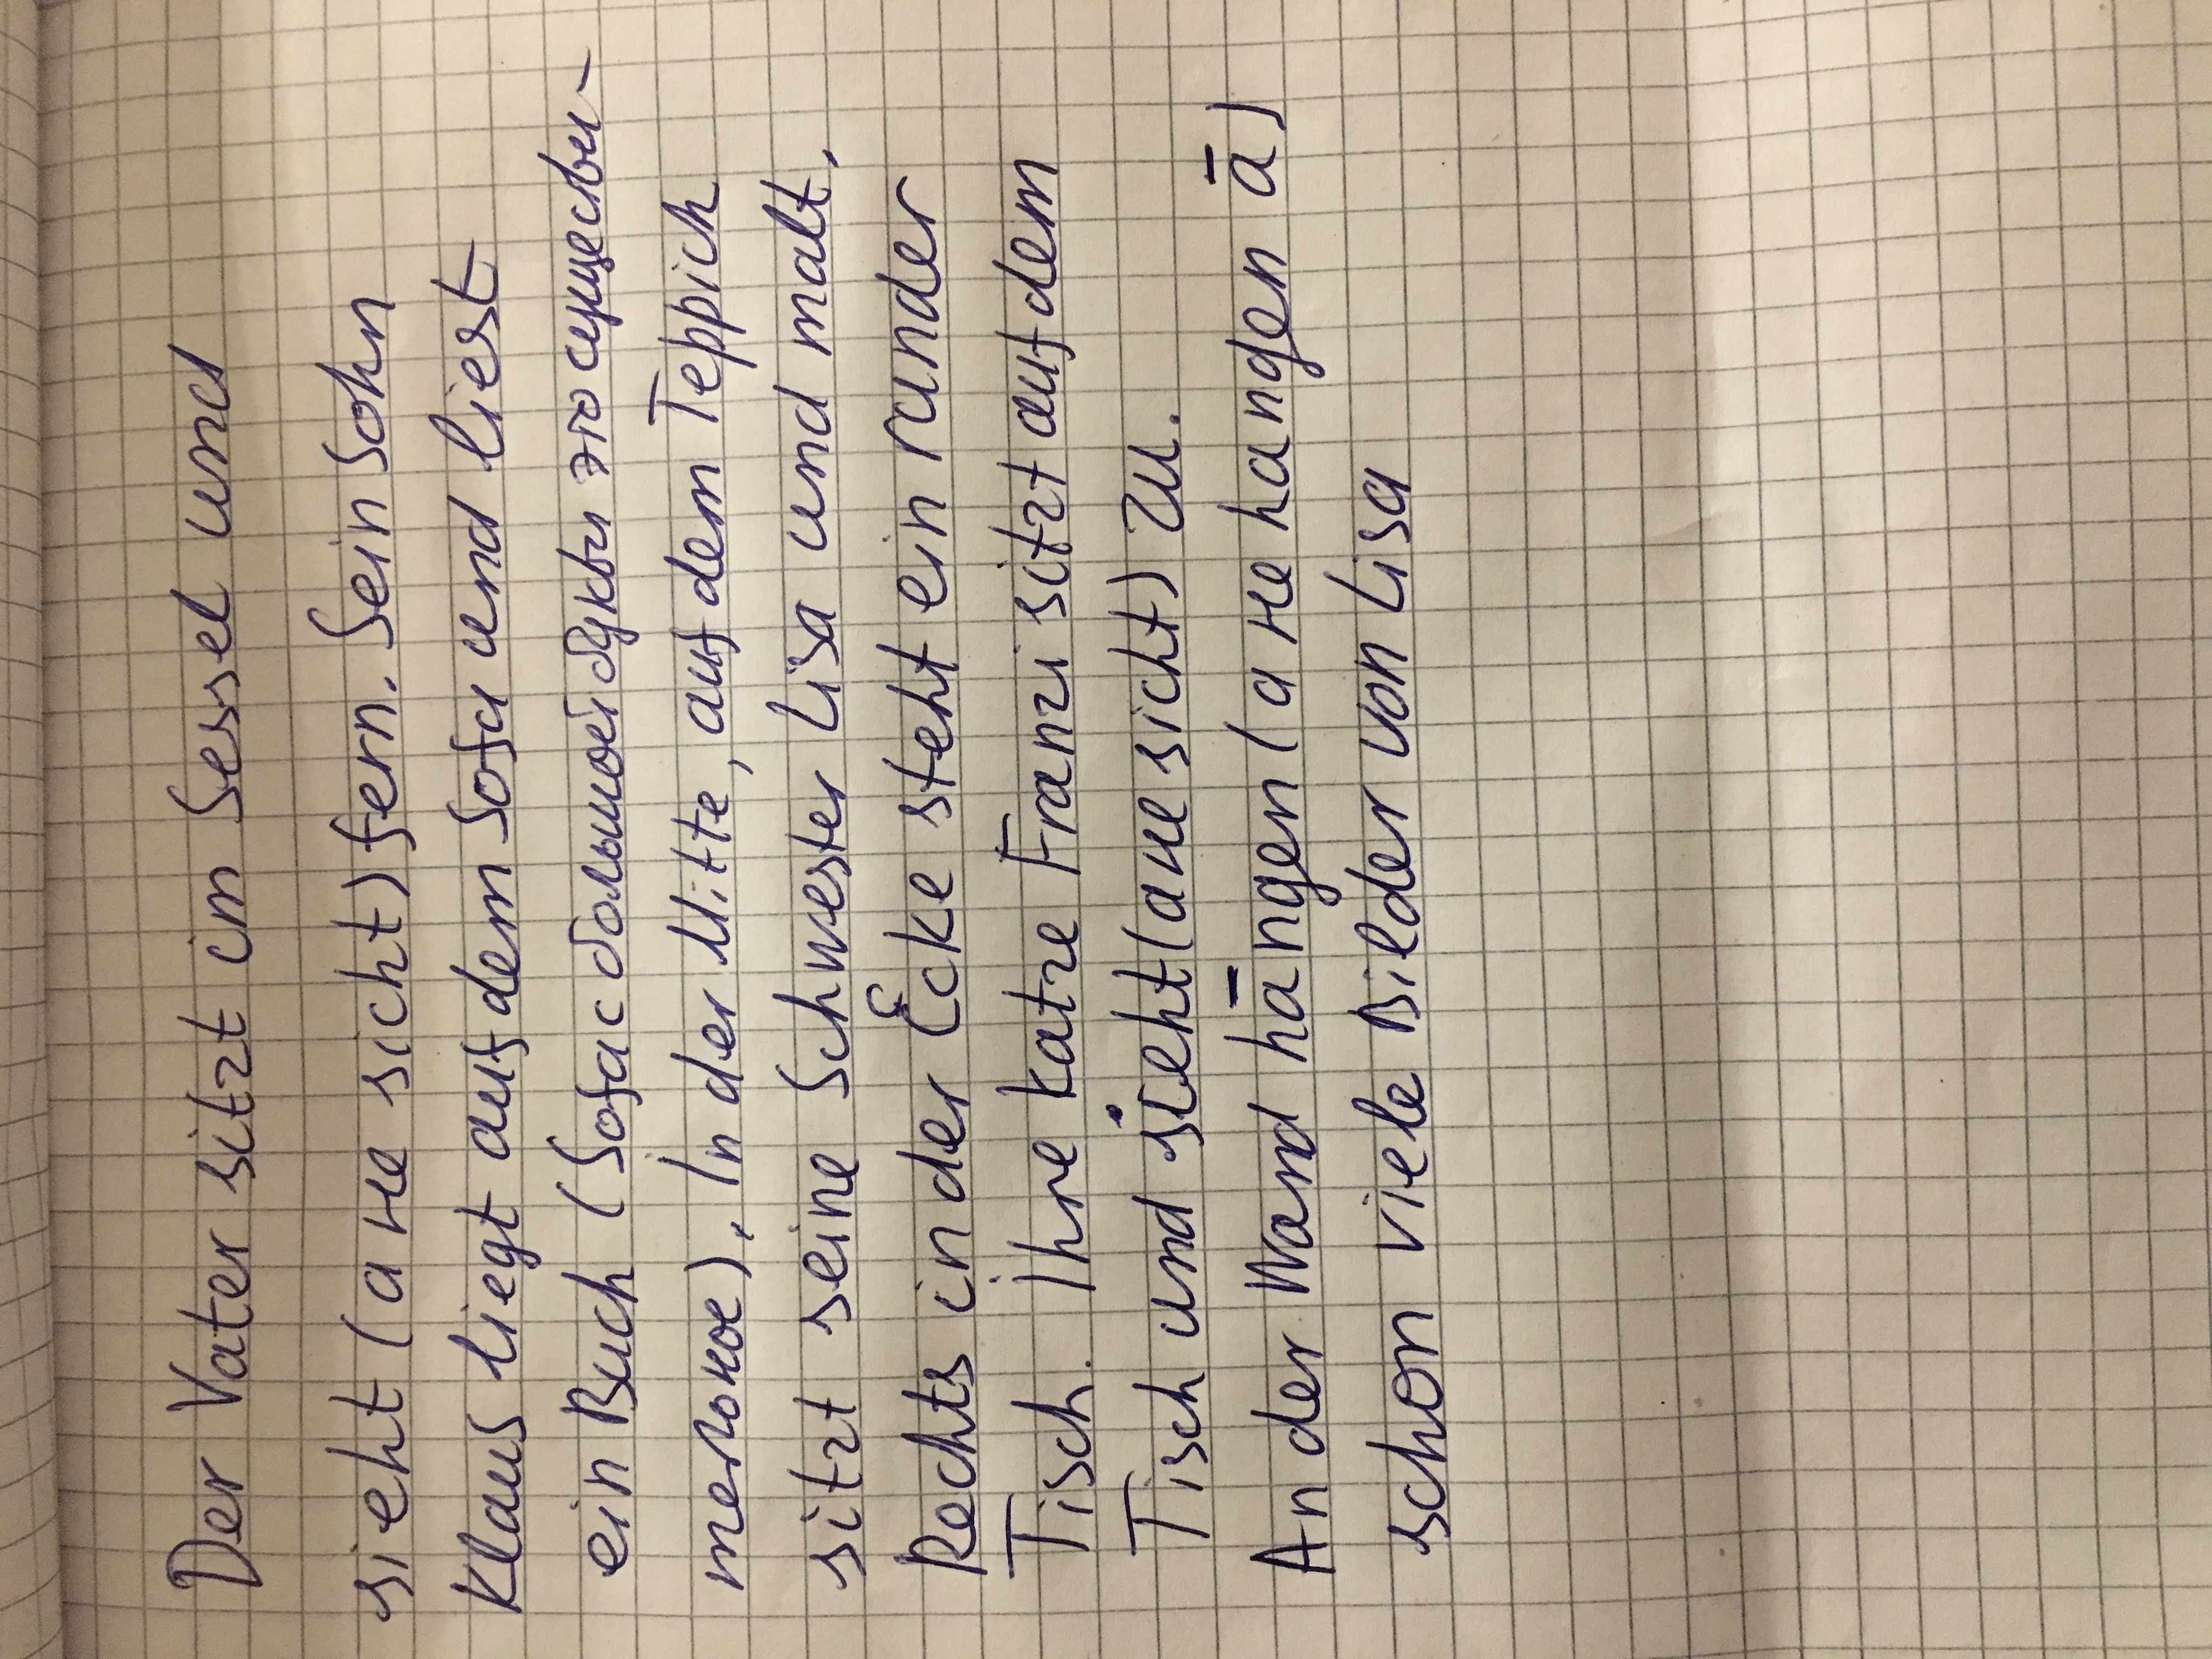 Der Vater sitzt im Sessel und
sieht (а не sicht) fern. Sein Sohn
Klaus liegt auf dem Sofa und liest
ein Buch (Sofa с большой буквы это существи-
тельное). In der Mitte, auf dem Teppich
sitzt seine Schwester Lisa und malt.
Rechts in der Ecke steht ein runder
Tisch. Ihre Katze Franzi sitzt auf dem
Tisch und sieht (а не sicht) zu.
An der Wand hāngen (а не hangen ā)
schon viele Bilder von Lisa